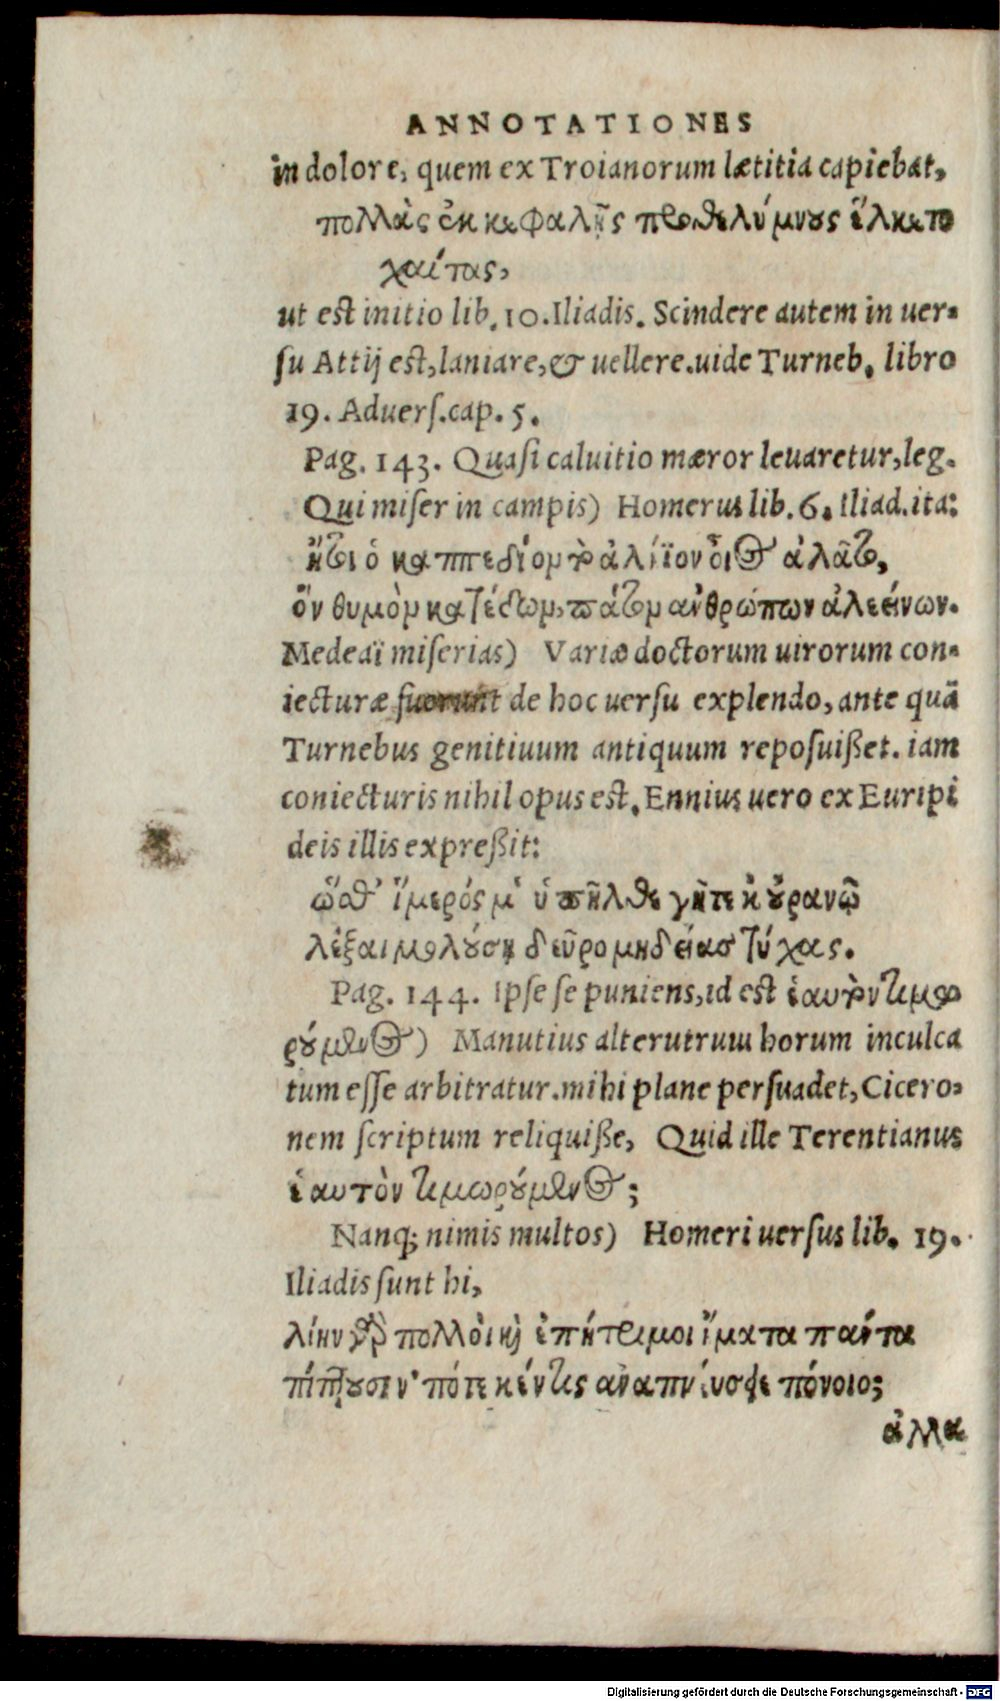 ANNOTATIONES
in dolore, quem ex Troianorum lætitia capiebat,
πολλὰς ἐκ κεφαλῆς προθελύμνους ἕλκετο
χαίτας,
ut est initio lib. 10. Iliadis. Scindere autem in uer-
su Attij est, laniare, & uellere. uide Turneb. libro
19. Aduers. cap. 5.
Pag. 143. Quasi caluitio mæror leuaretur, leg.
Qui miser in campis) Homerus lib. 6. Iliad. ita:
ἤτοι ὁ καππεδίον τὸ ἀλήϊον οἶος ἀλᾶτο,
ὃν θυμὸν κατέδων, πάτον ἀνθρώπων ἀλεείνων.
Medeaï miserias) Variæ doctorum uirorum con-
iecturæ fuerunt de hoc uersu explendo, ante quā
Turnebus genitiuum antiquum reposuißet. iam
coniecturis nihil opus est. Ennius uero ex Euripi
deis illis expreßit:
ὥσθ' ἵμερός μ' ὑπῆλθε γῆτε κ' οὐρανῷ
λέξαι μολούσῃ δεῦρο μηδείας τύχας.
Pag. 144. Ipse se puniens, id est ἑαυτὸν τιμω
ρούμενος) Manutius alterutrum horum inculca
tum esse arbitratur. mihi plane persuadet, Cicero-
nem scriptum reliquiße, Quid ille Terentianus
ἑαυτὸν τιμωρούμενος;
Nanq; nimis multos) Homeri uersus lib. 19.
Iliadis sunt hi,
λίην γὰρ πολλοὶ καὶ ἐπήτριμοι ἤματα πάντα
πίπτουσιν· πότε κέν τις ἀναπνεύσειε πόνοιο;
ἀλλα
Digitalisierung gefördert durch die Deutsche Forschungsgemeinschaft - DFG